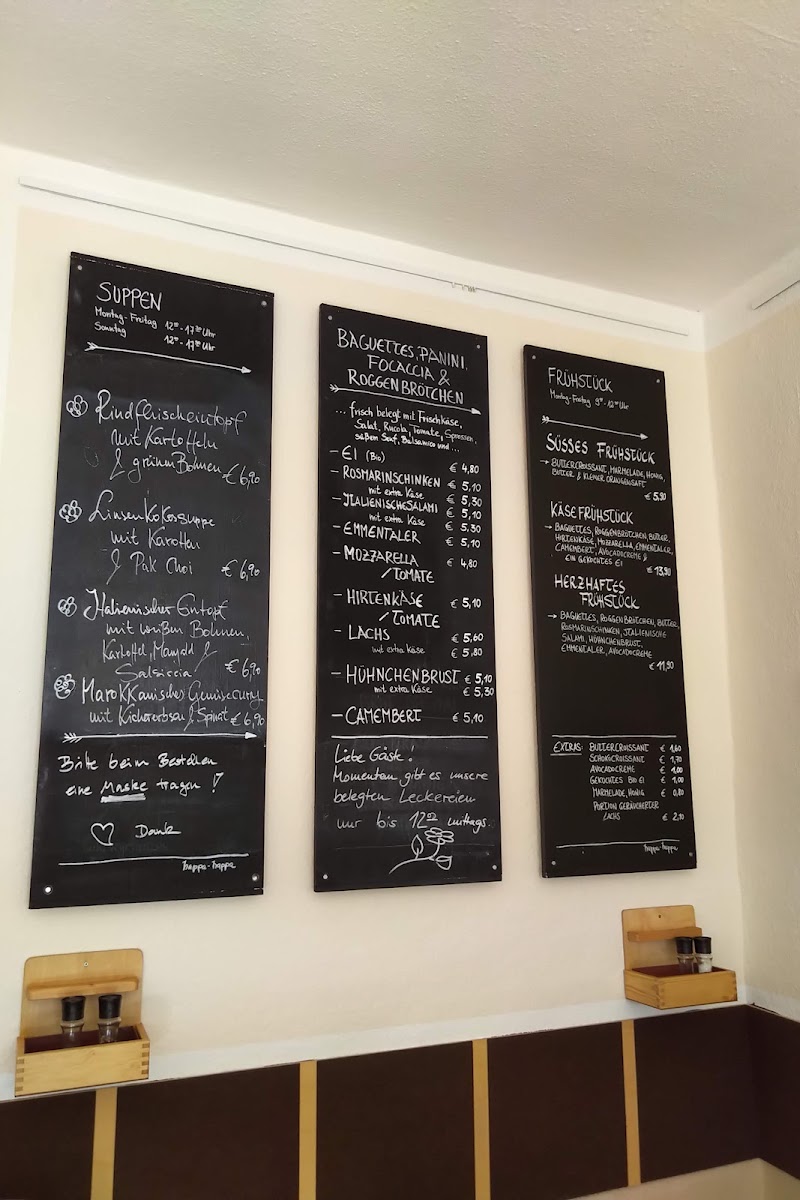 SUPPEN
Montag-Freitag 12⁰⁰-17³⁰ Uhr
Sonntag 12⁰⁰-17⁰⁰ Uhr
Rindfleischeintopf
mit Kartoffeln
& grünen Bohnen € 6,90
Linsen Kokossuppe
mit Karotten
& Pak Choi € 6,90
Italienischer Eintopf
mit weißen Bohnen,
Kartoffel, Mangold &
Salsiccia € 6,90
Marokkanisches Gemüsecurry
mit Kichererbsen & Spinat € 6,90
Bitte beim Bestellen
eine Maske tragen!
Danke
happa-happa
BAGUETTES, PANINI,
FOCACCIA &
ROGGENBRÖTCHEN
... frisch belegt mit Frischkäse,
Salat, Rucola, Tomate, Sprossen,
süßem Senf, Balsamico und ...
- EI (Bio) € 4,80
- ROSMARINSCHINKEN € 5,10
mit extra Käse € 5,30
- ITALIENISCHE SALAMI € 5,10
mit extra Käse € 5,30
- EMMENTALER € 5,10
- MOZZARELLA € 4,80
/TOMATE
- HIRTENKÄSE € 5,10
/TOMATE
- LACHS € 5,60
mit extra Käse € 5,80
- HÜHNCHENBRUST € 5,10
mit extra Käse € 5,30
- CAMEMBERT € 5,10
Liebe Gäste!
Momentan gibt es unsere
belegten Leckereien
nur bis 12⁰⁰ mittags.
FRÜHSTÜCK
Montag-Freitag 9⁰⁰-12⁰⁰ Uhr
SÜSSES FRÜHSTÜCK
→ BUTTERCROISSANT, MARMELADE, HONIG,
BUTTER & KLEINER ORANGENSAFT
€ 5,90
KÄSEFRÜHSTÜCK
→ BAGUETTES, ROGGENBRÖTCHEN, BUTTER,
HIRTENKÄSE, MOZZARELLA, EMMENTALER,
CAMEMBERT, AVOCADOCREME &
EIN GEKOCHTES EI
€ 13,90
HERZHAFTES
FRÜHSTÜCK
→ BAGUETTES, ROGGENBRÖTCHEN, BUTTER,
ROSMARINSCHINKEN, ITALIENISCHE
SALAMI, HÜHNCHENBRUST,
EMMENTALER, AVOCADOCREME
€ 11,90
EXTRAS: BUTTERCROISSANT € 1,60
SCHOKOCROISSANT € 1,70
AVOCADOCREME € 1,00
GEKOCHTES BIO EI € 1,00
MARMELADE, HONIG € 0,80
PORTION GERÄUCHERTER
LACHS € 2,10
happa-happa